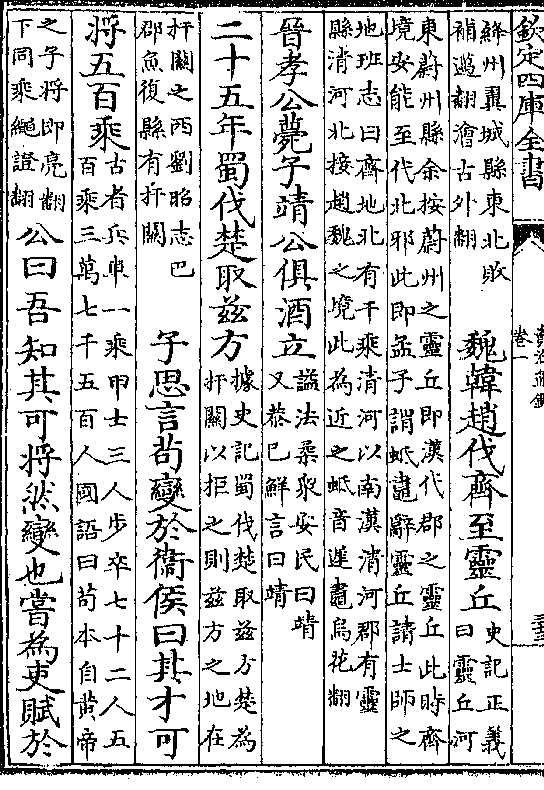 欽定四庫全書
資治通鑑
卷一
絳州翼城縣東北敗
補邁翻澮古外翻
魏韓趙伐齊至靈丘
史記正義
曰靈丘河
東蔚州縣余按蔚州之靈丘即漢代郡之靈丘此時齊
境安能至代北邪此即孟子謂蚳鼃辭靈丘請士師之
地班志曰齊地北有千乘清河以南漢清河郡有靈
縣清河北接趙魏之境此為近之蚳音遲鼃烏花翻
晉孝公薨子靖公俱酒立
諡法柔衆安民曰靖
又恭已鮮言曰靖
二十五年蜀伐楚取兹方
據史記蜀伐楚取兹方楚為
扞關以拒之則兹方之地在
扞關之西劉昭志巴
郡魚復縣有扞關
子思言苟變於衛侯曰其才可
將五百乘
古者兵車一乘甲士三人步卒七十二人五
百乘三萬七千五百人國語曰苟本自黄帝
之子將即亮翻
下同乘繩證翻
公曰吾知其可將然變也嘗為吏賦於